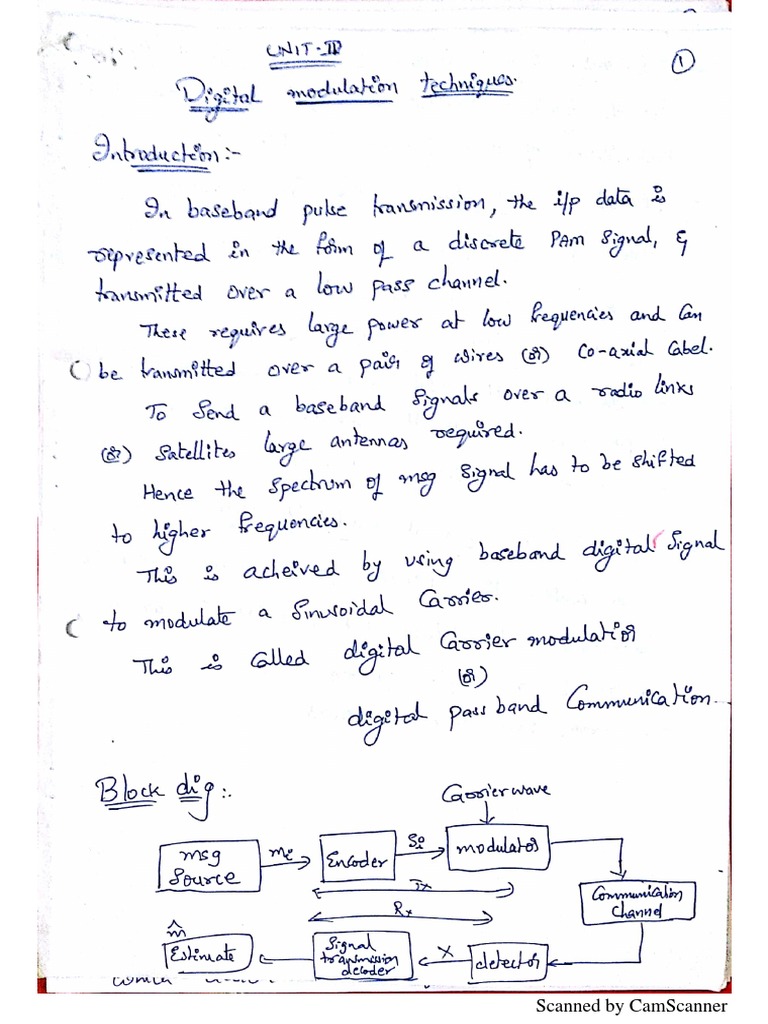 UNIT-III
①
Digital modulation techniques.
Introduction :-
In baseband pulse transmission, the i/p data is
represented in the form of a discrete PAM signal, &
transmitted over a low pass channel.
These requires large power at low frequencies and can
be transmitted over a pair of wires (or) Co-axial Cabel.
To send a baseband signals over a radio links
(or) satellites large antennas required.
Hence the spectrum of msg signal has to be shifted
to higher frequencies.
This is acheived by using baseband digital signal
to modulate a sinusoidal Carrier.
This is called digital Carrier modulation
(or)
digital pass band Communication.
Block dig :.
Carrier wave
msg Source
mi
Encoder
Si
modulator
Tx
Communication Channel
Rx
m̂
Estimate
Signal transmission decoder
X
detector
Scanned by CamScanner